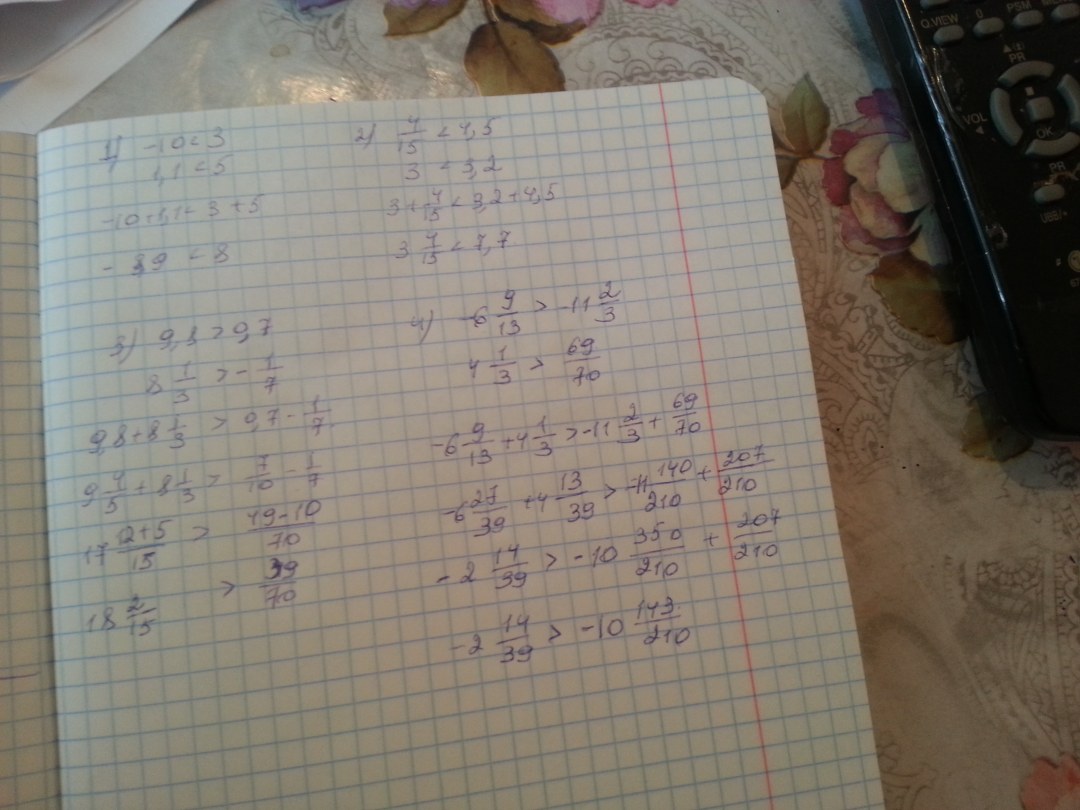 1) -10 < 3
1,1 < 5
-10+1,1 < 3+5
-8,9 < 8
2) 4/15 < 4,5
3 < 3,2
3+4/15 < 3,2+4,5
3 4/15 < 7,7
3) 9,8 > 0,7
8 1/3 > -1/7
9,8+8 1/3 > 0,7-1/7
9 4/5 + 8 1/3 > 7/10 - 1/7
17 (12+5)/15 > (49-10)/70
18 2/15 > 39/70
4) -6 9/13 > -11 2/3
4 1/3 > 69/70
-6 9/13 + 4 1/3 > -11 2/3 + 69/70
-6 27/39 + 4 13/39 > -11 140/210 + 207/210
-2 14/39 > -10 350/210 + 207/210
-2 14/39 > -10 143/210
Q.VIEW
PSM
PR
VOL
OK
PR